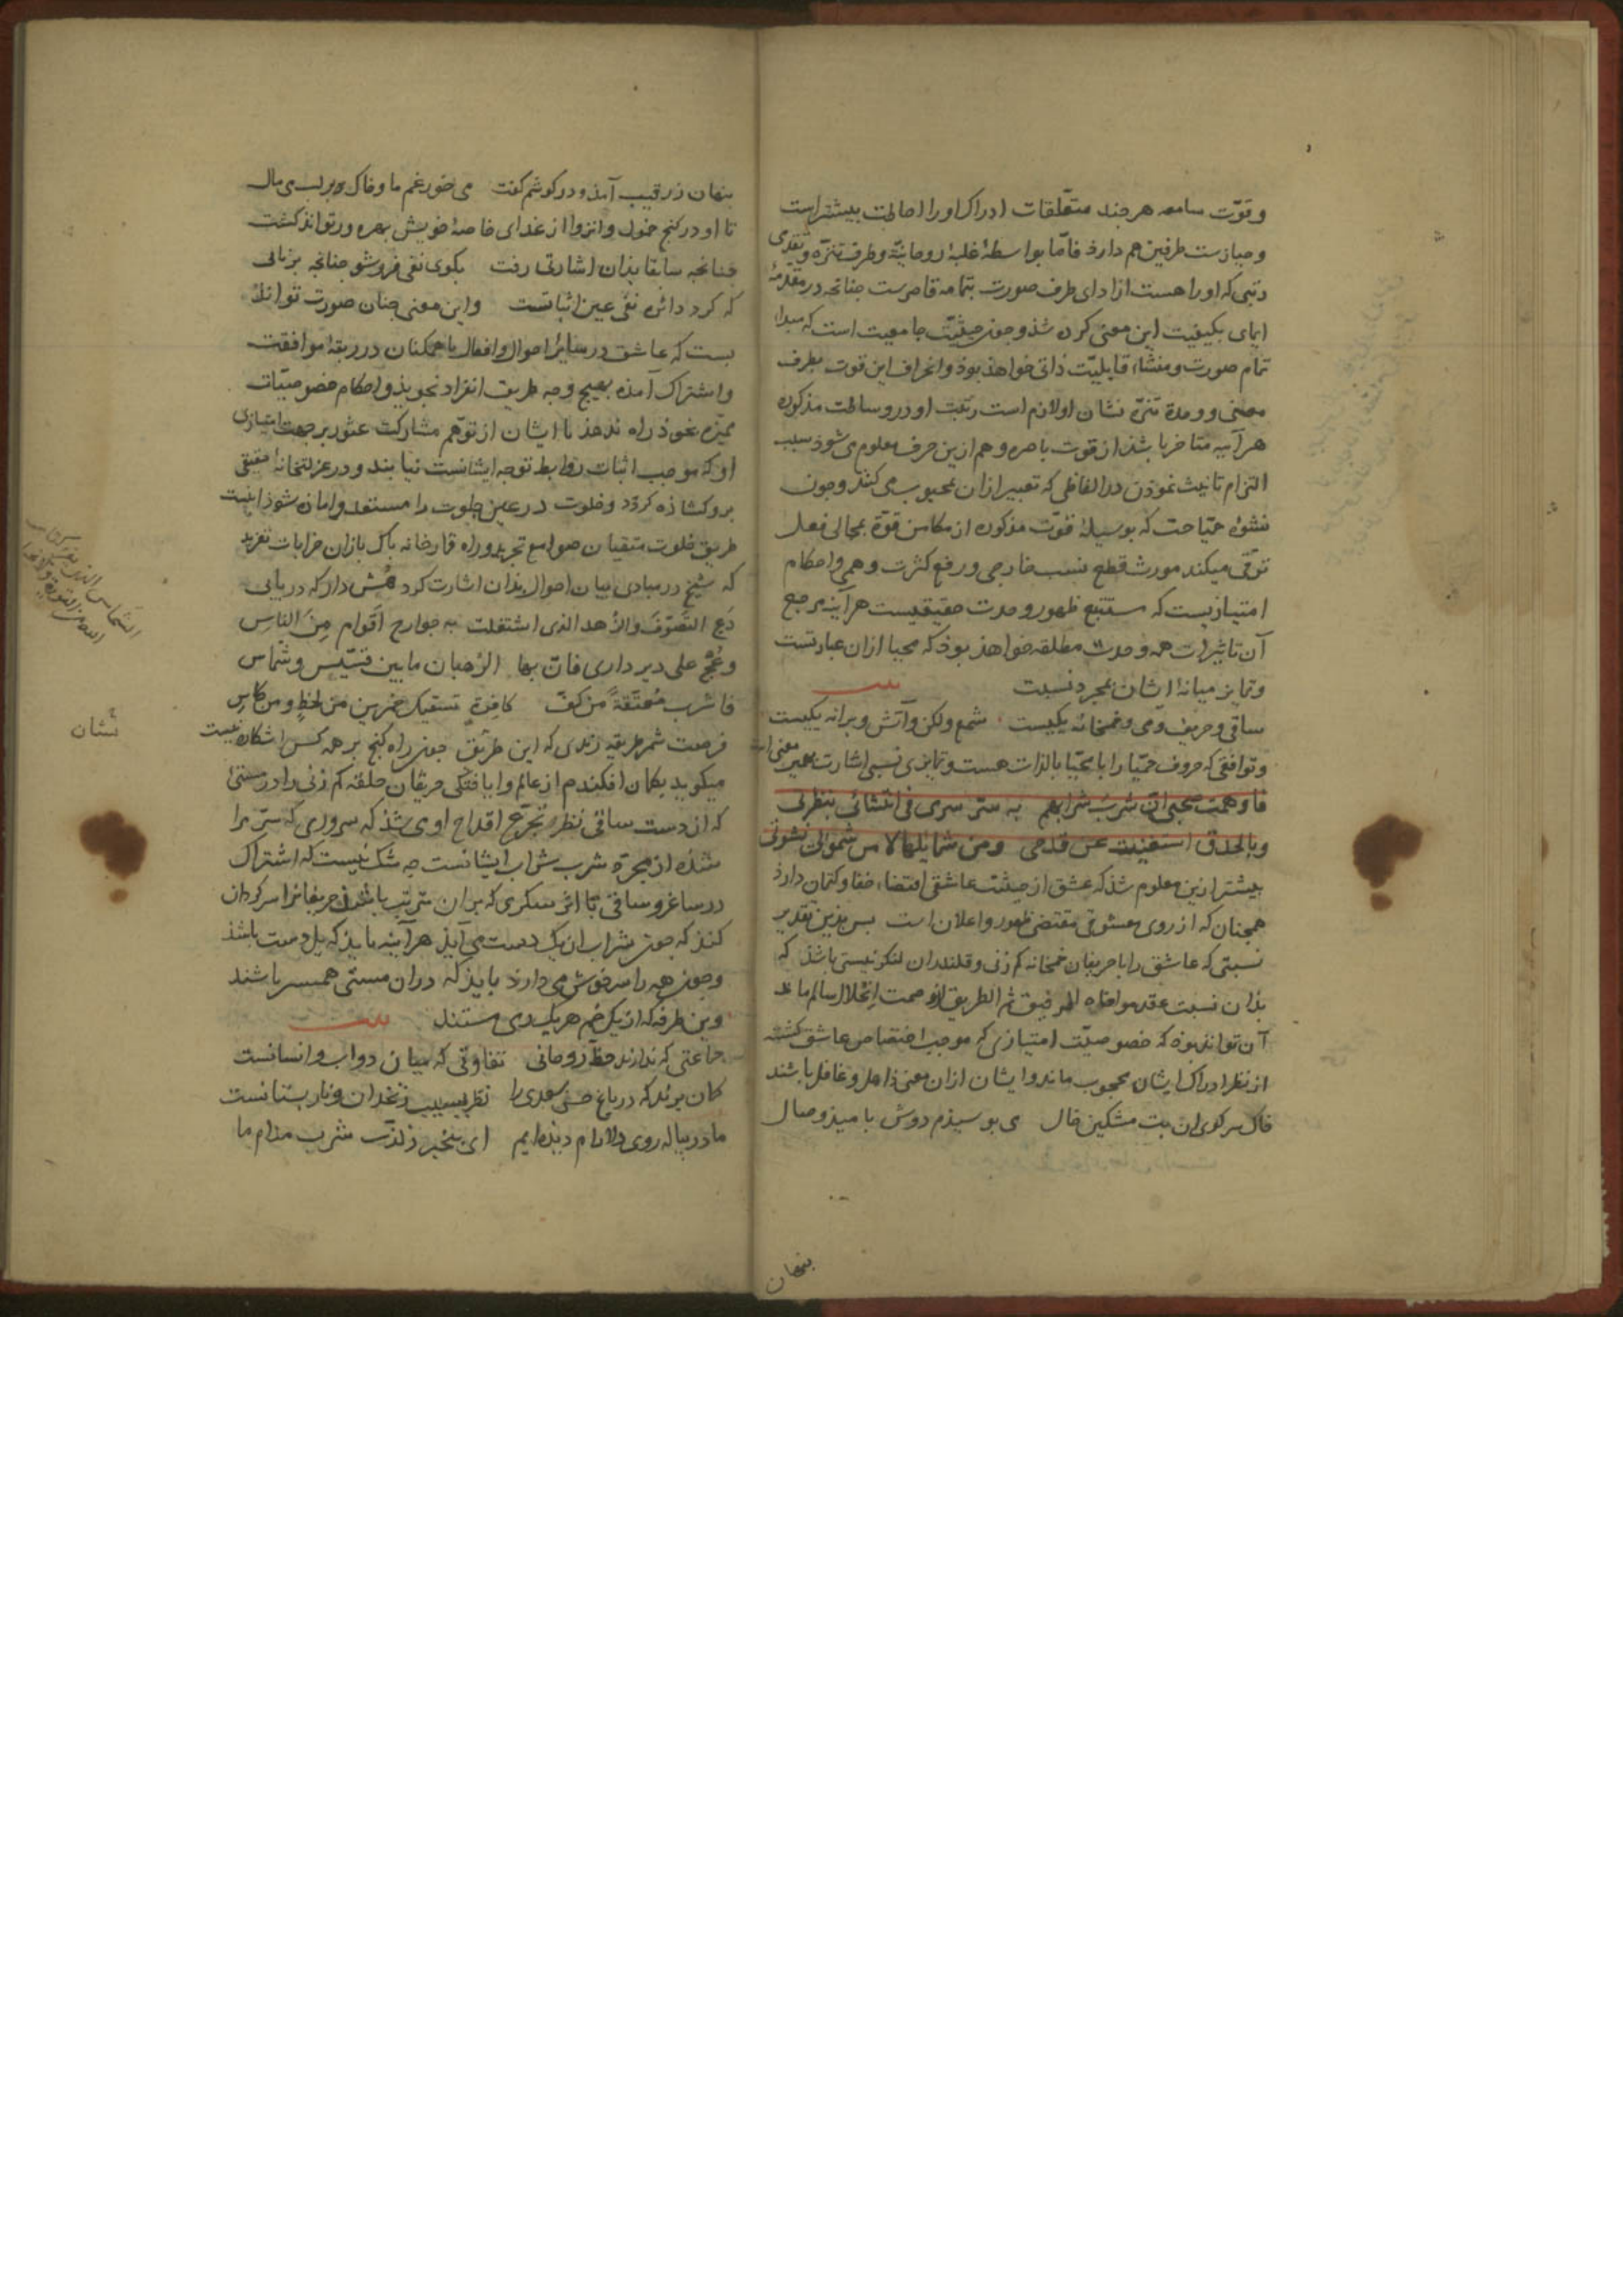 وقوّت سامعه هرچند متعلّقات ادراک او را احاطت بیشتر است
وحیازت طرفین هم دارد فامّا بواسطهٔ غلبهٔ روحانیّة وطرف تنزّه وتقدّمی
رتبی که او را هست از ادای طرف صورت بتمامه قاصرست چنانچه در مقدّمهٔ
ایمای بکیفیت این معنی کرده شد وچون حیثیّت جامعیت است که مبدا
تمام صورت ومنشاء قابلیّت ذاتی خواهد بوذ وانحراف این قوت بطرف
معنی ووحدة تنزّه نشان او لازم است رتبت او در وساطت مذکوره
هرآینه متاخر باشد از قوت باصره وهم ازین حرف معلوم می شوذ سبب
التزام تانیث نموذن در الفاظی که تعبیر ازان بمحبوب می کنند وچون
نشوهٔ حمیّا حت که بوسیلهٔ قوّت مذکوره از مکامن قوّة بمجالی فعل
ترقّی میکند مورث قطع نسب خارجی ورفع کثرت وهمی واحکام
امتیازیست که مستتبع ظهور وحدت حقیقیست هرآینه مرجع
آن تاثیرات همه وحدت مطلقه خواهذ بوذ که محیا ازان عبارتست
وتمایز میانهٔ ایشان بمجرد نسبت
ساقی وحریف ومی وخمخانه یکیست شمع ولکن وآتش وپرانه یکیست
وتوافقی که حروف حمیّا را با محیّا بالذات هست وتمایزی نسبی اشارت بعین معنی است
فاوهمت صحبی انّ شرب شرابهم به سرّ سری فی انتشائی بنظرتی
وبالحدق استغنیت عن قدحی ومن شمایلها لا من شمولی نشوتی
پیشتر ازین معلوم شذ که عشق از حیثیت عاشقی اقتضاء خفا وکتمان دارذ
همچنان که از روی معشوقی مقتضی ظهور واعلان است پس بذین تقدیر
نسبتی که عاشق را با حریفان خمخانه کم زنی وقلندران لنکر نیستی باشذ که
بذان نسبت عقد مواخاه الرفیق ثم الطریق از وصمت انحلال سالم ماند
آن تواند بوذ که خصوصیّت امتیازی که موجب اختصاص عاشق کشته
از نظر ادراک ایشان محجوب ماند وایشان ازان معنی ذاهل وغافل باشند
خاک سر کوی ان بت مشکین خال می بوسیذم دوش بامیذ وصال
پنهان
پنهان ز رقیب آمذ ودر کوشم کفت می خور غم ما وخاک بر لب می مال
تا او در کنج خمول وانزوا از غذای خاصهٔ خویش بهره ور تواند کشت
چنانچه سابقا بذان اشارتی رفت بکوی نفی فروشو چنانچه برنائی
که کرد دائره نفی عین اثباتست واین معنی چنان صورت تواند
بست که عاشق در سایر احوال وافعال با همکنان در ربقهٔ موافقت
واشتراک آمده بهیچ وجه طریق انفراد نجویذ واحکام خصوصیّات
ممیّزه بخوذ راه ندهذ تا ایشان از توهّم مشارکت عثور بر جهت امتیازی
او که موجب اثبات روابط توجه ایشانست نیابند ودر عزلتخانهٔ حقیقی
برو کشاذه کردد وخلوت در عین جلوت را مستعد وامان شوذ اینست
طریق خلوت متقیان صوامع تجرید وراه قمارخانه پاک بازان خرابات تفرید
که شیخ در مبادی بیان احوال بذان اشارت کرد هُش دار که دریابی
دَعِ التصوّفَ والزهد الذی اشتغلت به جوارح اقوام مِنَ الناسِ
وعُجْ علی دیر داری فان بها الرّهبان ما بین قسّیس وشمّاس
فاشرب معتّقةً من کفّ کافرة تسقیک خمرین من لحظٍ ومن کاس
فرصت شمر طریقه رندی که این طریق چون راه کنج بر همه کس اشکاره نیست
میکوید بکمان افکندم از عالم وایافتکی حریفان حلقه کم زنی را در مستی
که از دست ساقی نظر وتجرّع اقداح اوی شذ که سروری که سرّ مرا
شذه از بهرّه شرب شراب ایشانست چه شک نیست که اشتراک
در ساغر وساقی تا اثر سکری که بران مترتّب باشذ حریفانرا سرکردان
کنذ که چون شراب ان یک دست می آیذ هرآینه بایذ که یل دست باشذ
وچون همه را سرخوش می دارذ بایذ که دران مستی همسر باشند
وین طرفه که از یک خم هریک ز می مستند
جماعتی که ندانند حظّ روحانی تفاوتی که میان دواب وانسانست
کمان برند که در باغ حسن سعدی را نظر بسیب زنخدان ونار پستانست
ما در پیاله روی دلارام دیذه ایم ای بیخبر ز لذّت شرب مدام ما
نشان